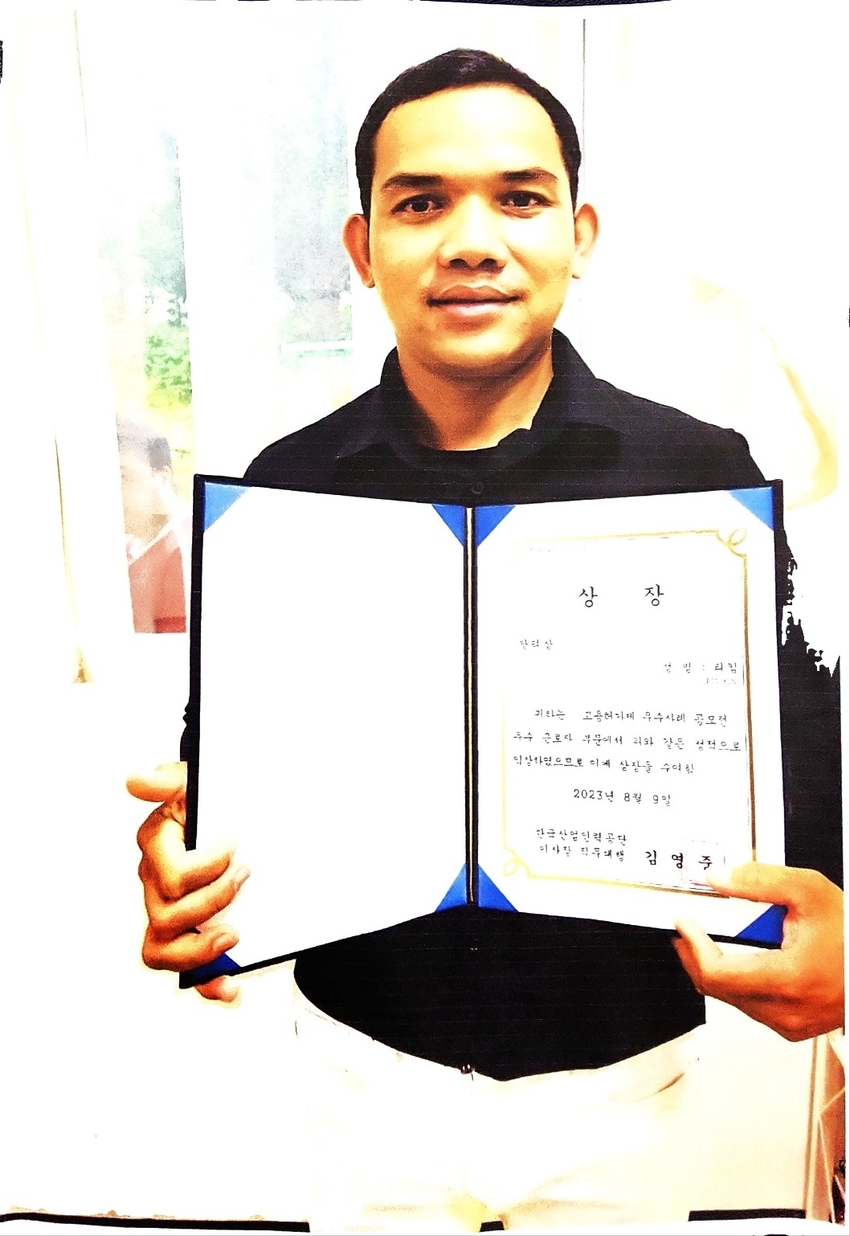 상 장
장려상
성 명 : 리킴
귀하는 고용허가제 우수사례 공모전
우수 근로자 부문에서 위와 같은 성적으로
입상하였으므로 이에 상장을 수여함
2023년 8월 9일
한국산업인력공단
이사장 직무대행 김영중